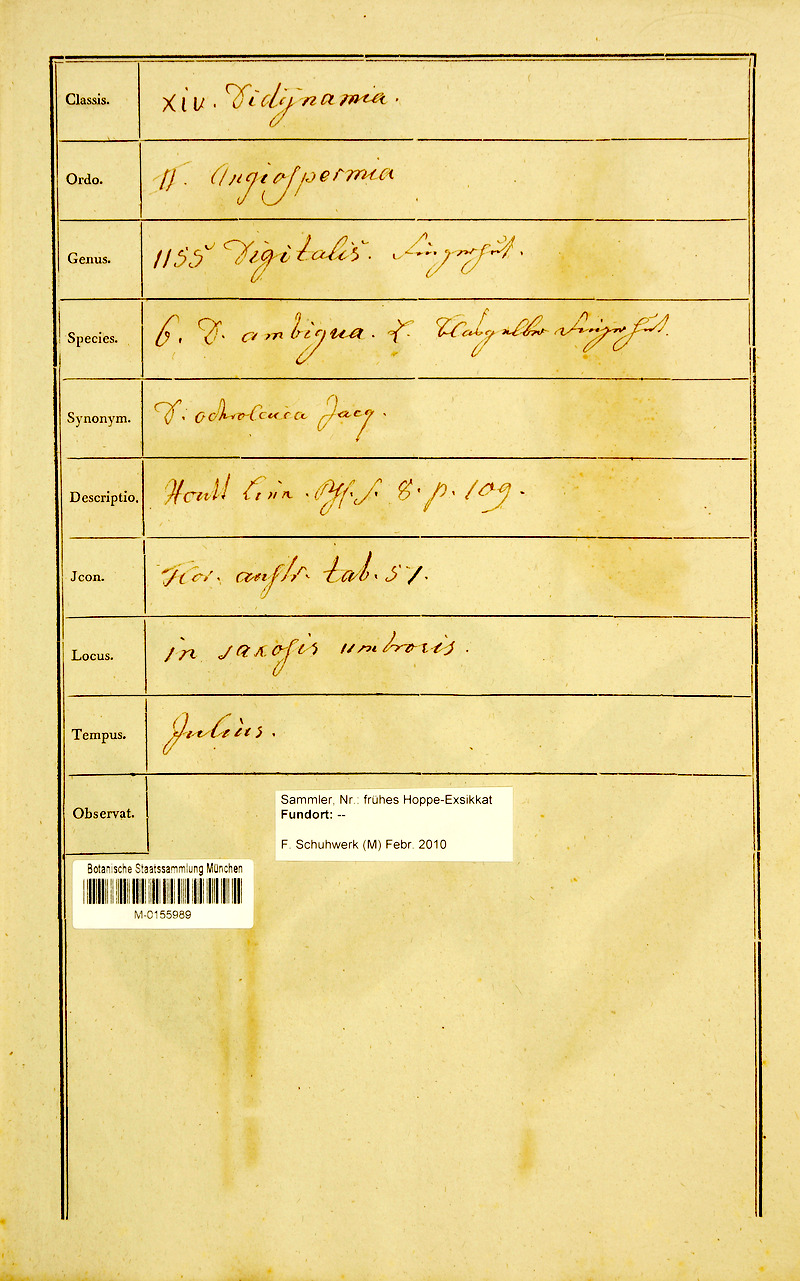 Classis. xiv. Didÿnamia.
Ordo. II. Angiospermia
Genus. 1155 Digitalis. Fingerhut.
Species. 6. D. ambigua. L. Blasgelber Fingerhut.
Synonym. D. ochroleuca Jacq.
Descriptio. Houtt Linn. Pfl. s. 8. p. 109.
Jcon. Flor. austr. tab. 57.
Locus. in saxosis umbrosis.
Tempus. Julius.
Observat.
Sammler, Nr.: frühes Hoppe-Exsikkat
Fundort: --
F. Schuhwerk (M) Febr. 2010
Botanische Staatssammlung München
M-0155989